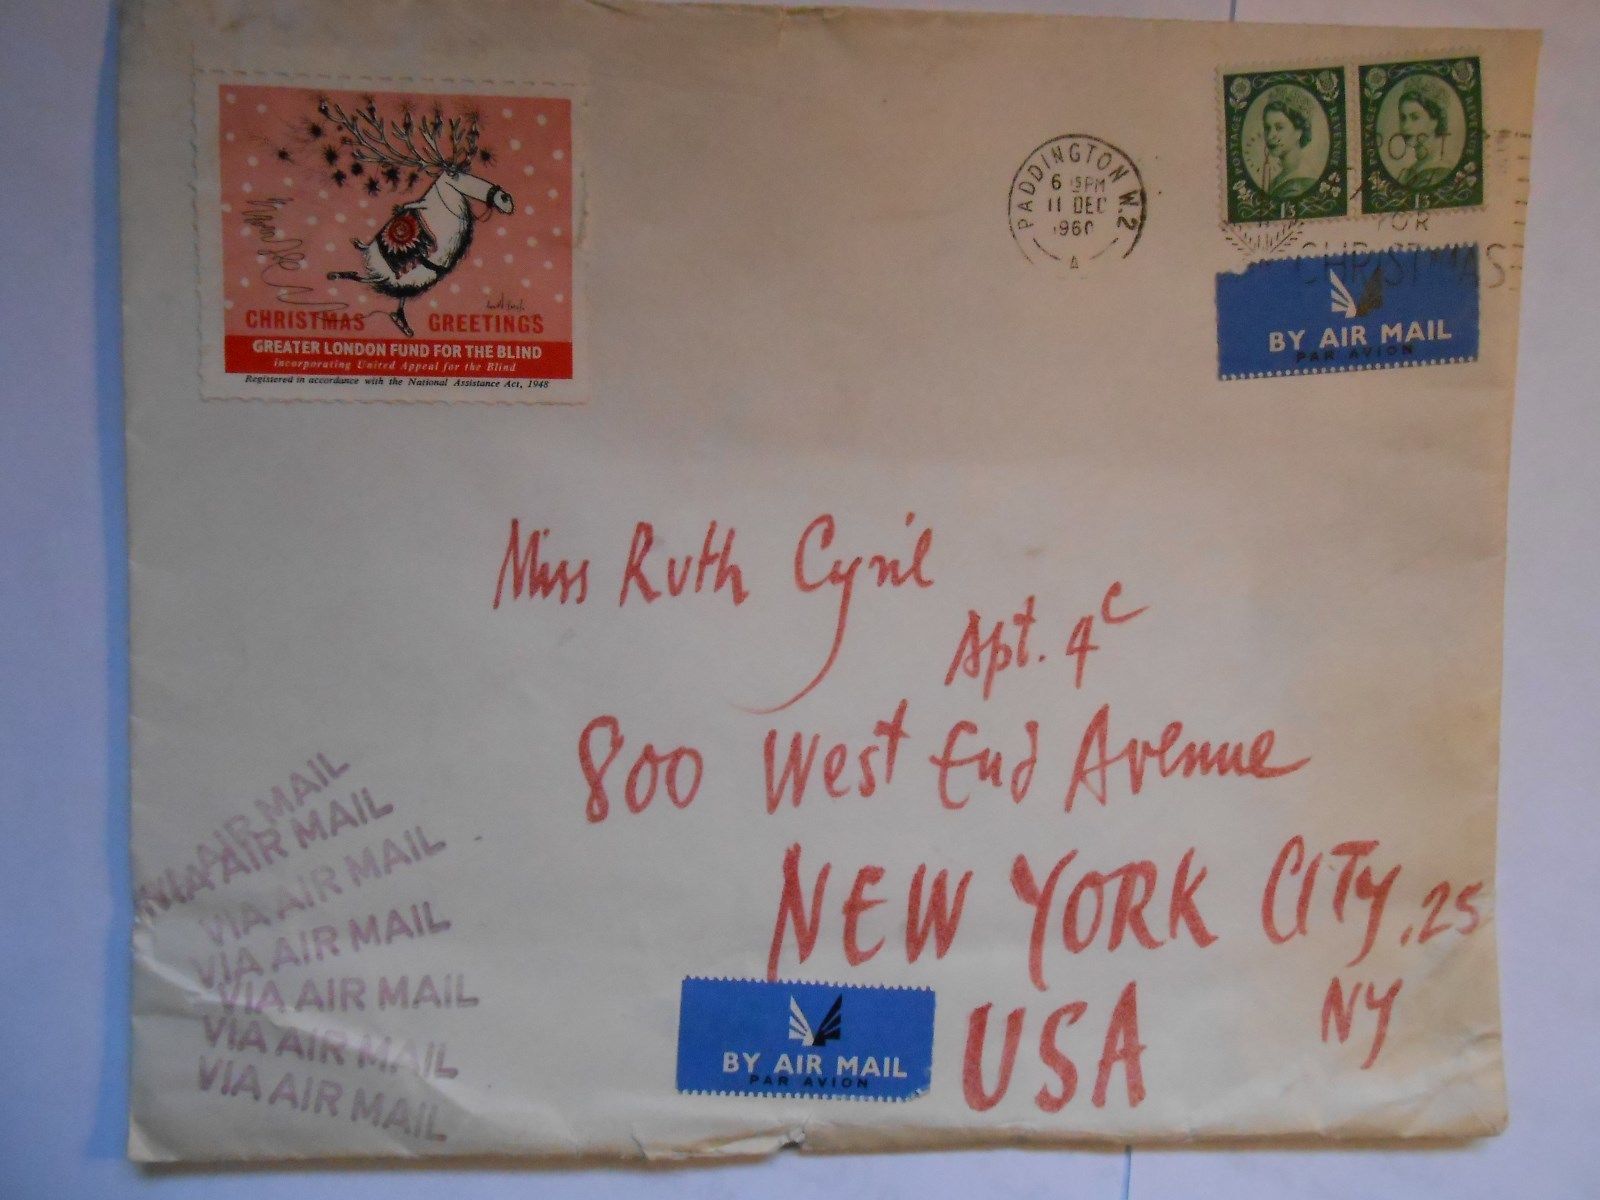 CHRISTMAS GREETINGS
GREATER LONDON FUND FOR THE BLIND
incorporating United Appeal for the Blind
Registered in accordance with the National Assistance Act, 1948
PADDINGTON W.2
6 15PM
11 DEC
1960
A
POSTAGE REVENUE
1/3
POSTAGE REVENUE
1/3
POST
FOR
CHRISTMAS
BY AIR MAIL
PAR AVION
Miss Ruth Cyril
Apt. 4C
800 West End Avenue
NEW YORK CITY, 25
NY
USA
BY AIR MAIL
PAR AVION
VIA AIR MAIL
VIA AIR MAIL
VIA AIR MAIL
VIA AIR MAIL
VIA AIR MAIL
VIA AIR MAIL
AIR MAIL